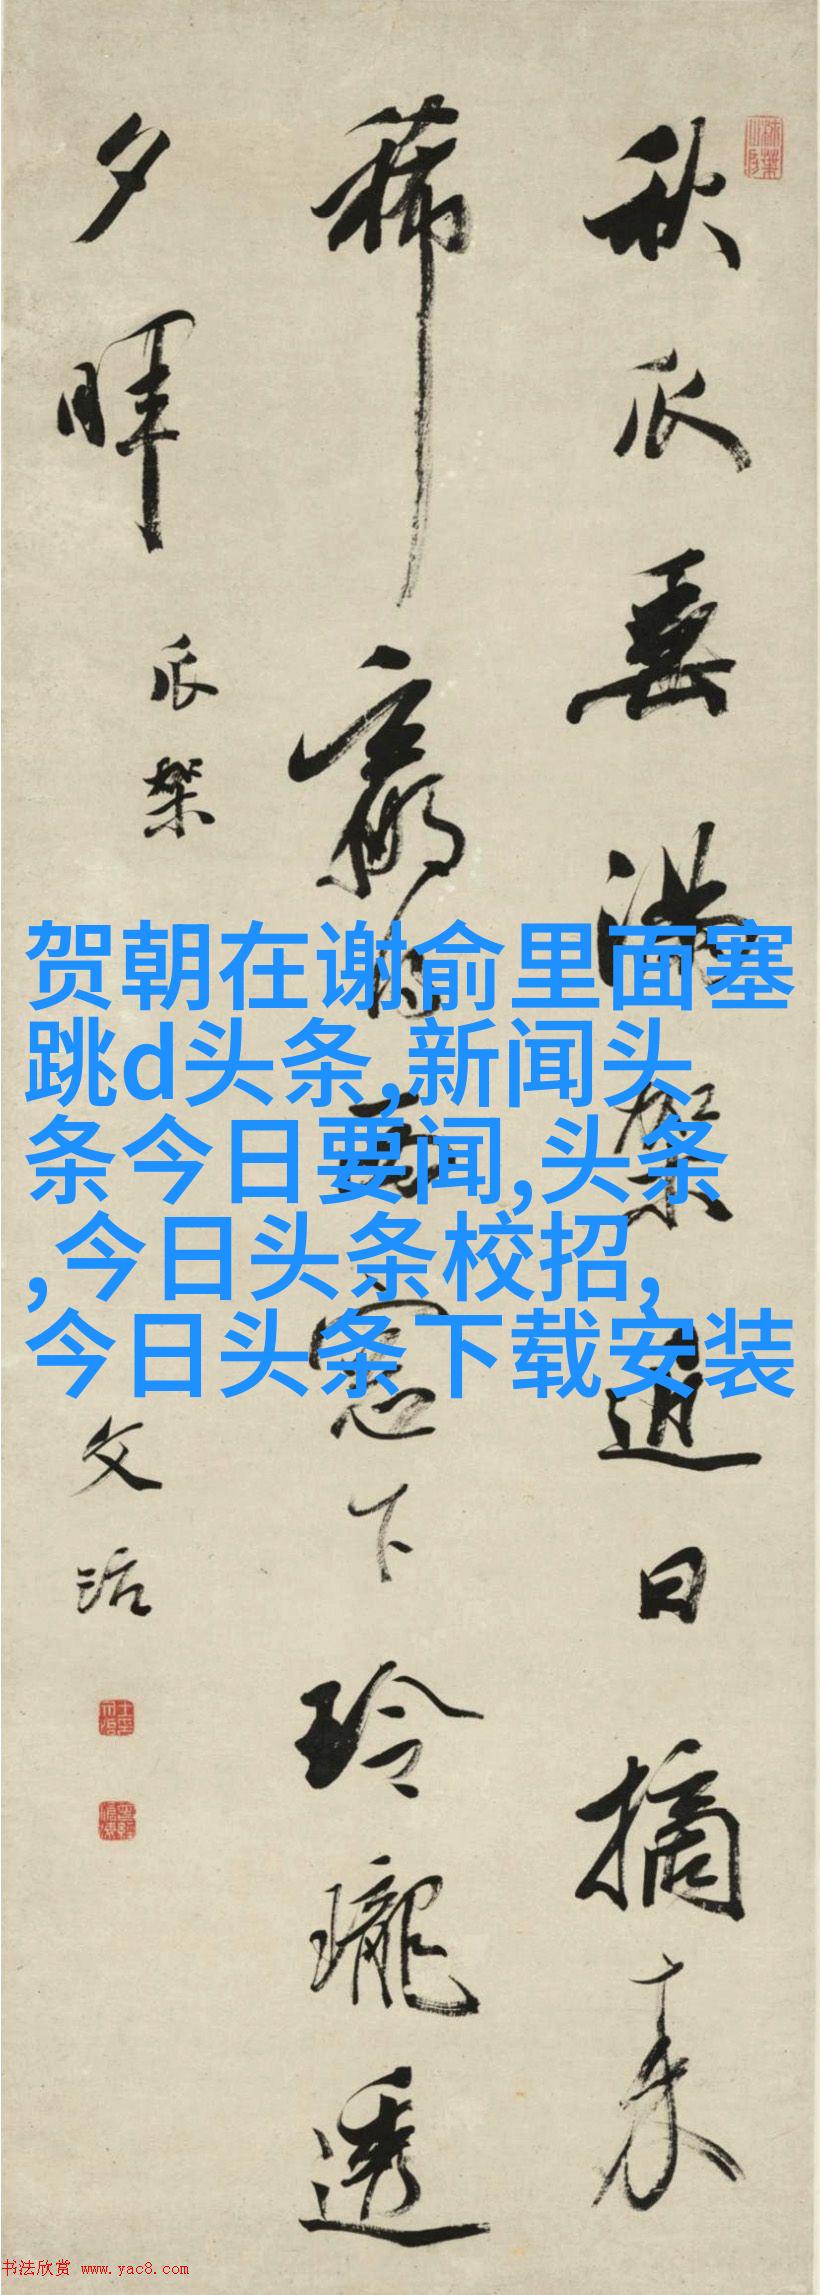 秋瓜垂满架近日摘来
稀赢得西窗下玲珑透
夕晖
瓜架
文治
贺朝在谢俞里面塞
跳d头条,新闻头
条今日要闻,头条
,今日头条校招,
今日头条下载安装
书法欣赏 www.yac8.com